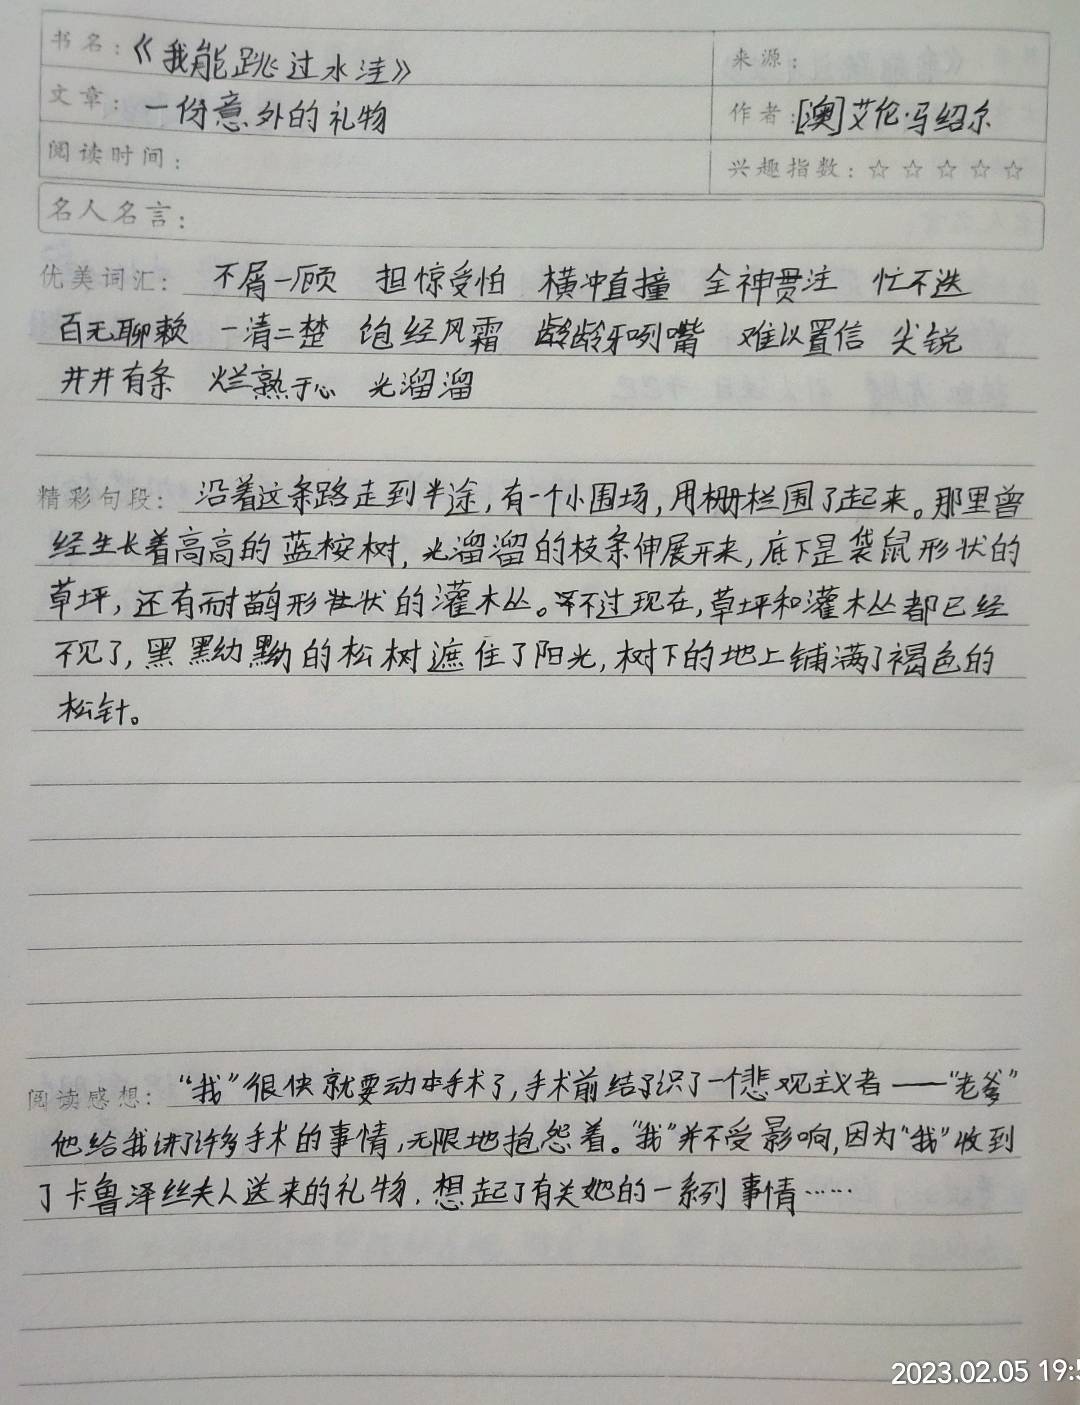 书名：《我能跳过水洼》 来源：
文章：一份意外的礼物 作者：[澳]艾伦·马绍尔
阅读时间： 兴趣指数：☆☆☆☆☆
名人名言：
优美词汇： 不屑一顾 担惊受怕 横冲直撞 全神贯注 忙不迭
百无聊赖 一清二楚 饱经风霜 龇牙咧嘴 难以置信 尖锐
井井有条 烂熟于心 光溜溜
精彩句段： 沿着这条路走到半途，有一个小围场，用栅栏围了起来。那里曾
经生长着高高的蓝桉树，光溜溜的枝条伸展开来，底下是袋鼠形状的
草坪，还有而对鹋形状的灌木丛。不过现在，草坪和灌木丛都已经
不见了，黑黝黝的松树遮住了阳光，树下的地上铺满了褐色的
松针。
阅读感想： “我”很快就要动手术了，手术前结识了一个悲观主义者——“老爹”
他给我讲了许多手术的事情，无限地抱怨着。“我”并不受影响，因为“我”收到
了卡鲁泽丝夫人送来的礼物，想起了有关她的一系列事情……
2023.02.05 19:5